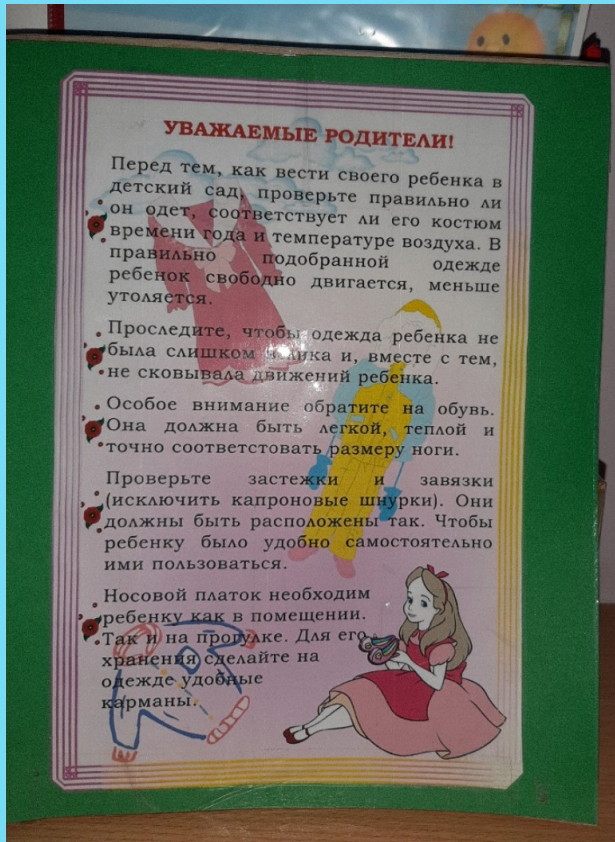 УВАЖАЕМЫЕ РОДИТЕЛИ!
Перед тем, как вести своего ребенка в
детский сад, проверьте правильно ли
он одет, соответствует ли его костюм
времени года и температуре воздуха. В
правильно подобранной одежде
ребенок свободно двигается, меньше
утоляется.
Проследите, чтобы одежда ребенка не
была слишком велика и, вместе с тем,
не сковывала движений ребенка.
Особое внимание обратите на обувь.
Она должна быть легкой, теплой и
точно соответстовать размеру ноги.
Проверьте застежки и завязки
(исключить капроновые шнурки). Они
должны быть расположены так. Чтобы
ребенку было удобно самостоятельно
ими пользоваться.
Носовой платок необходим
ребенку как в помещении.
Так и на прогулке. Для его
хранения сделайте на
одежде удобные
карманы.